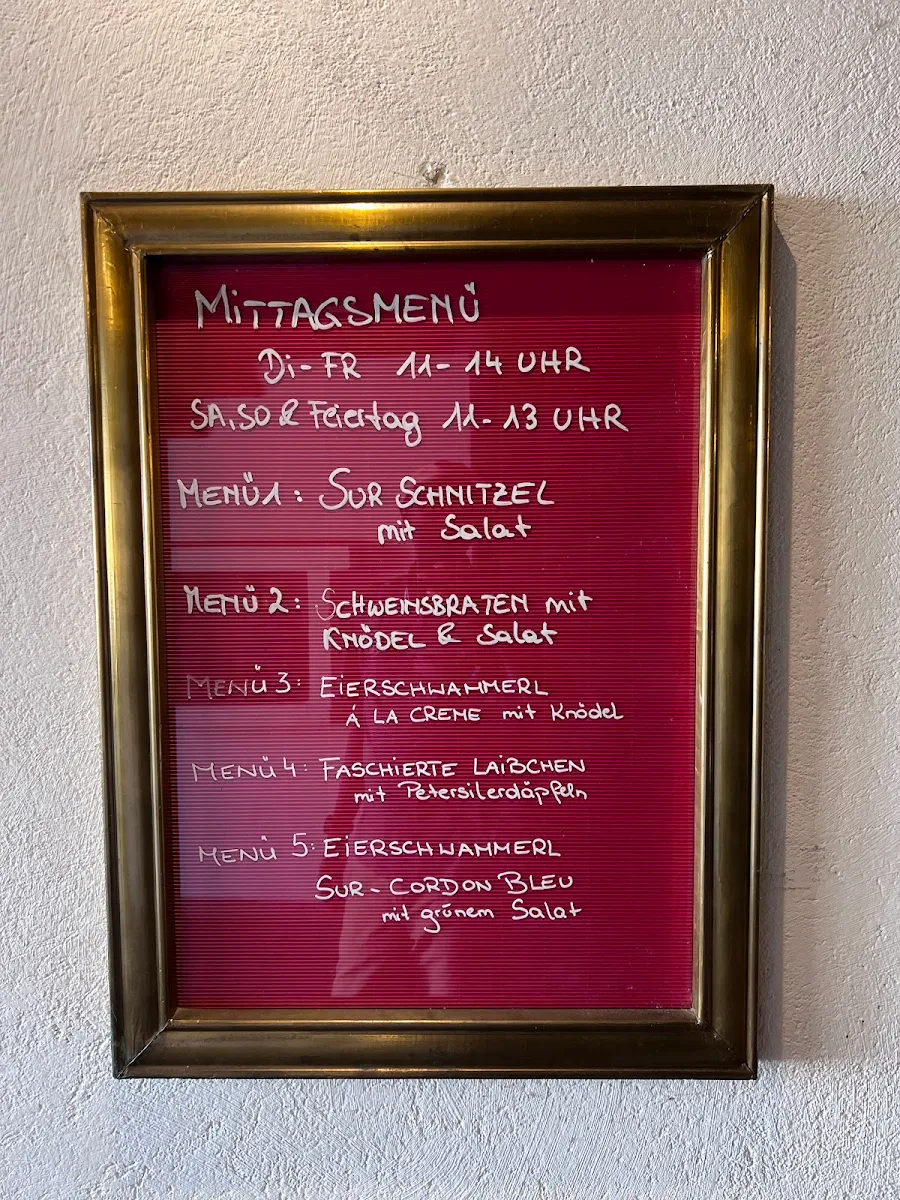 MITTAGSMENÜ
Di-FR 11-14 UHR
SA,SO & Feiertag 11-13 UHR
MENÜ1: SUR SCHNITZEL
mit Salat
MENÜ 2: SCHWEINSBRATEN mit
KNÖDEL & Salat
MENÜ 3: EIERSCHWAMMERL
Á LA CREME mit Knödel
MENÜ 4: FASCHIERTE LAIBCHEN
mit Petersilerdäpfeln
MENÜ 5: EIERSCHWAMMERL
SUR-CORDON BLEU
mit grünem Salat